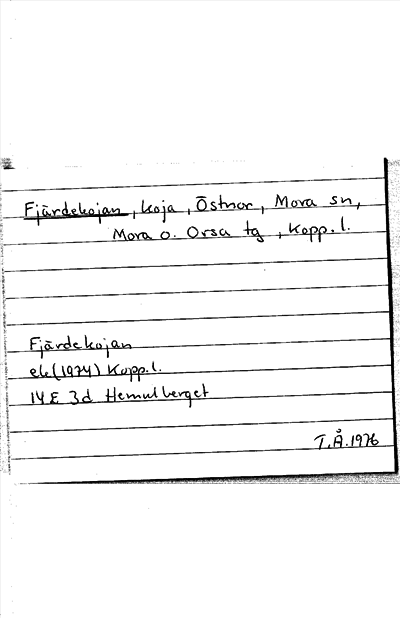 Fjärdekojan, koja, Östnor, Mora sn,
Mora o. Orsa tg, Kopp. l.
Fjärdekojan
ek (1974) Kopp. l.
14E 3d Hemulberget
T.Å. 1976